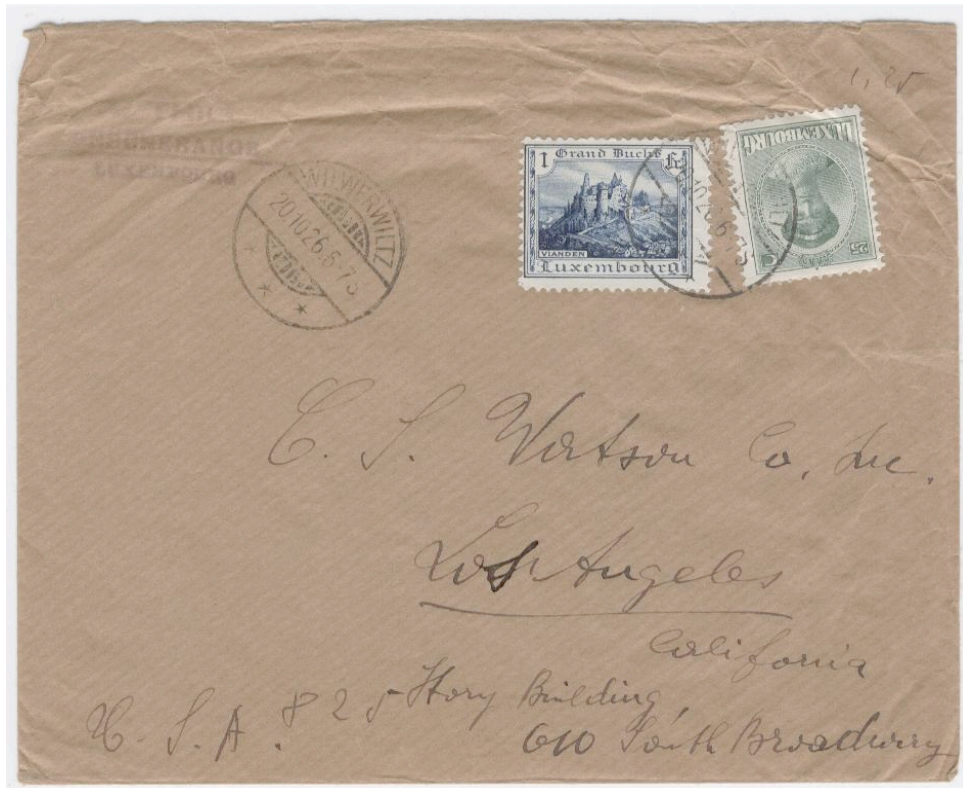 1,25
LUXEMBOURG
WILWERWILTZ
20.10.26.6-7 S
1 Grand Duché Fr
VIANDEN
Luxembourg
LUXEMBOURG
25 C
C. S. Watson Co, Inc.
Los Angeles
California
U. S. A. 825 Story Building,
610 South Broadway